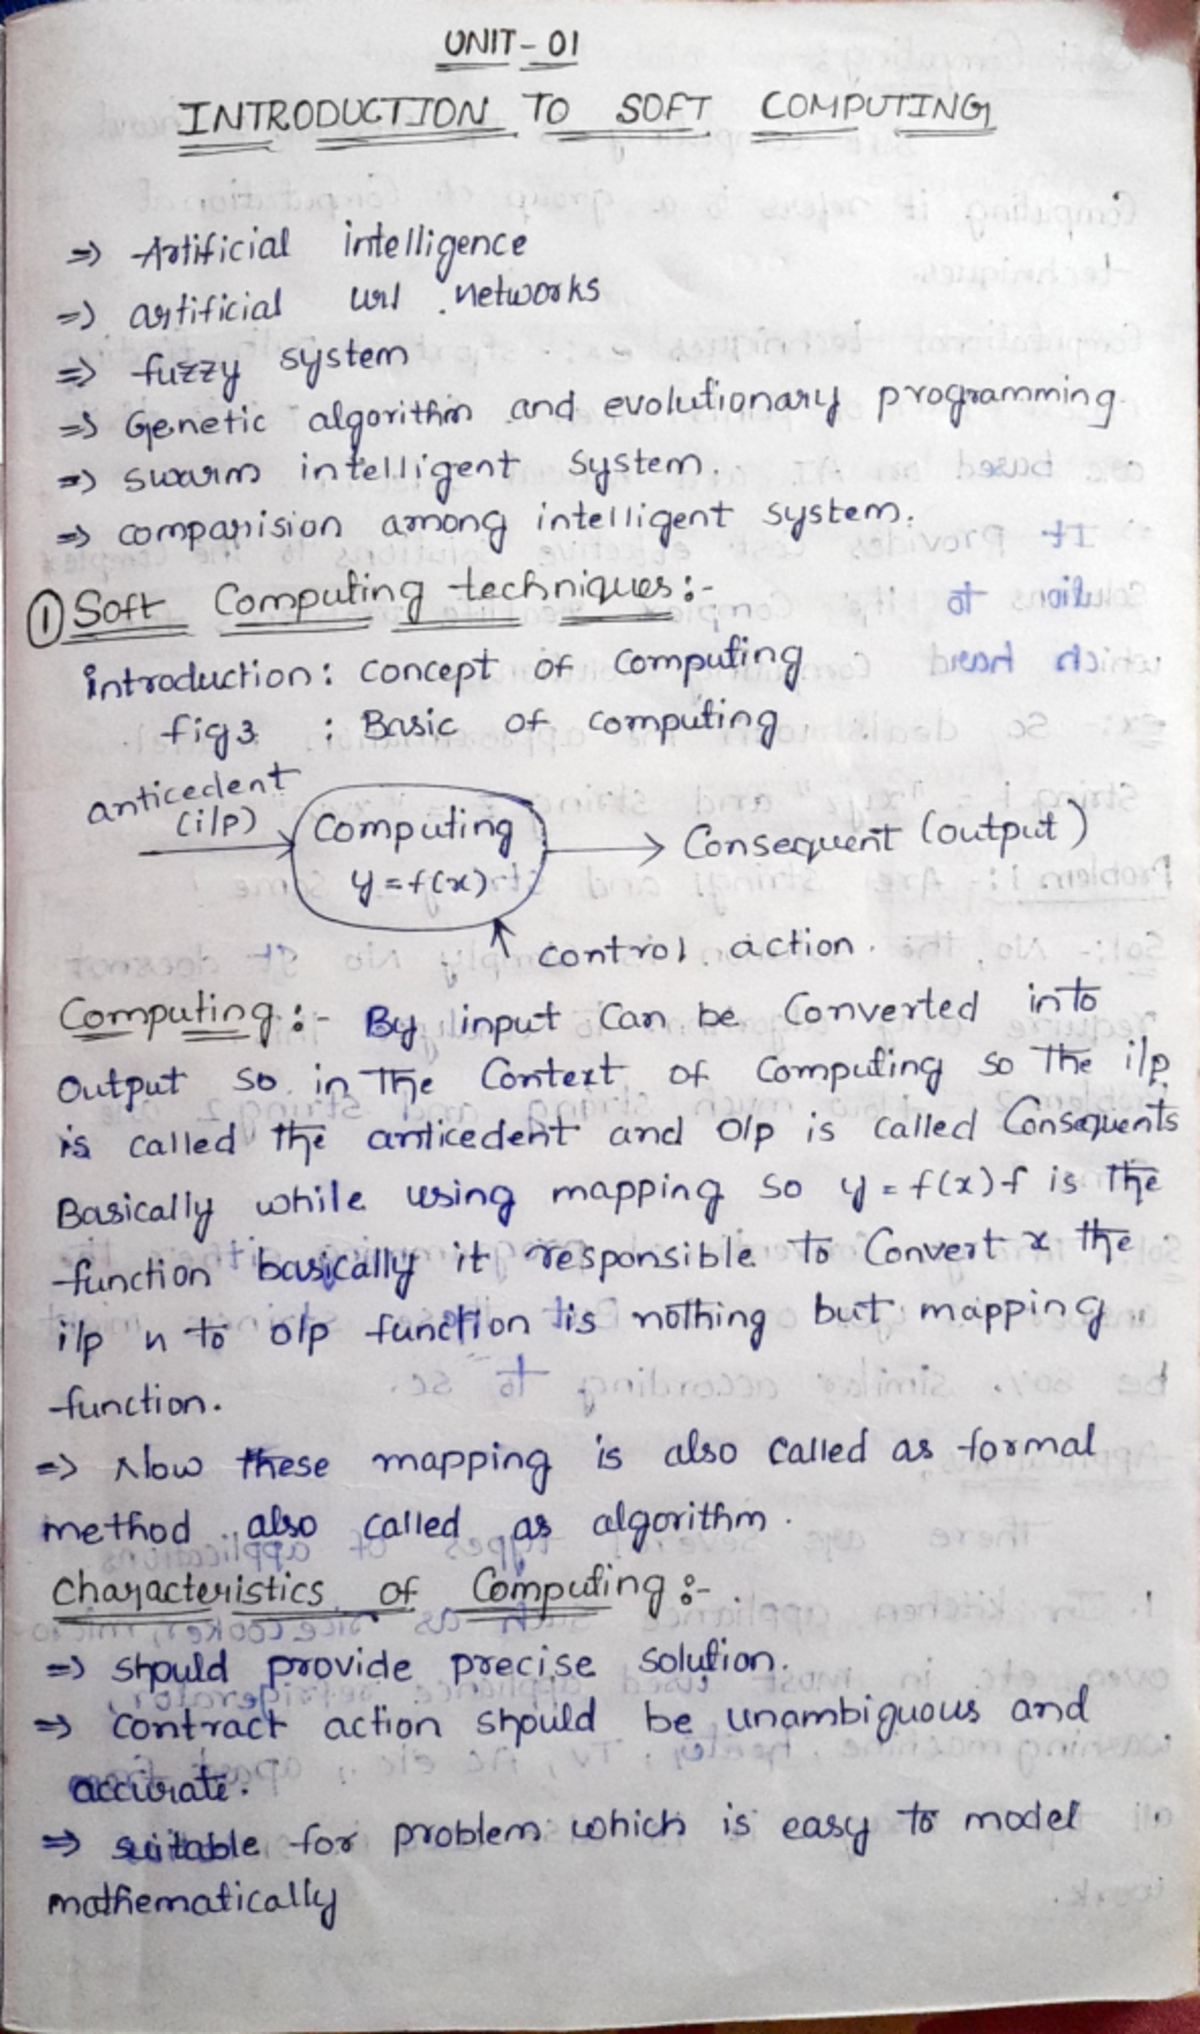 UNIT-01
INTRODUCTION TO SOFT COMPUTING
=> Artificial intelligence
=> artificial networks
=> fuzzy system
=> Genetic algorithm and evolutionary programming.
=> swarm intelligent system.
=> comparision among intelligent system.
① Soft Computing techniques:-
introduction: concept of computing
fig 3 : Basic of computing
anticedent
(i/p)
Computing
y=f(x)
Consequent (output)
control action.
Computing:- By input can be converted into
output so in the context of computing so the i/p
is called the anticedent and o/p is called Consequents
Basically while using mapping so y = f(x) f is the
function basically it responsible to Convert x the
i/p n to o/p function is nothing but mapping
function.
=> Now these mapping is also called as formal
method also called as algorithm.
Characteristics of Computing:-
=> should provide precise solution.
=> contract action should be unambiguous and
accurate.
=> suitable for problem which is easy to model
mathematically